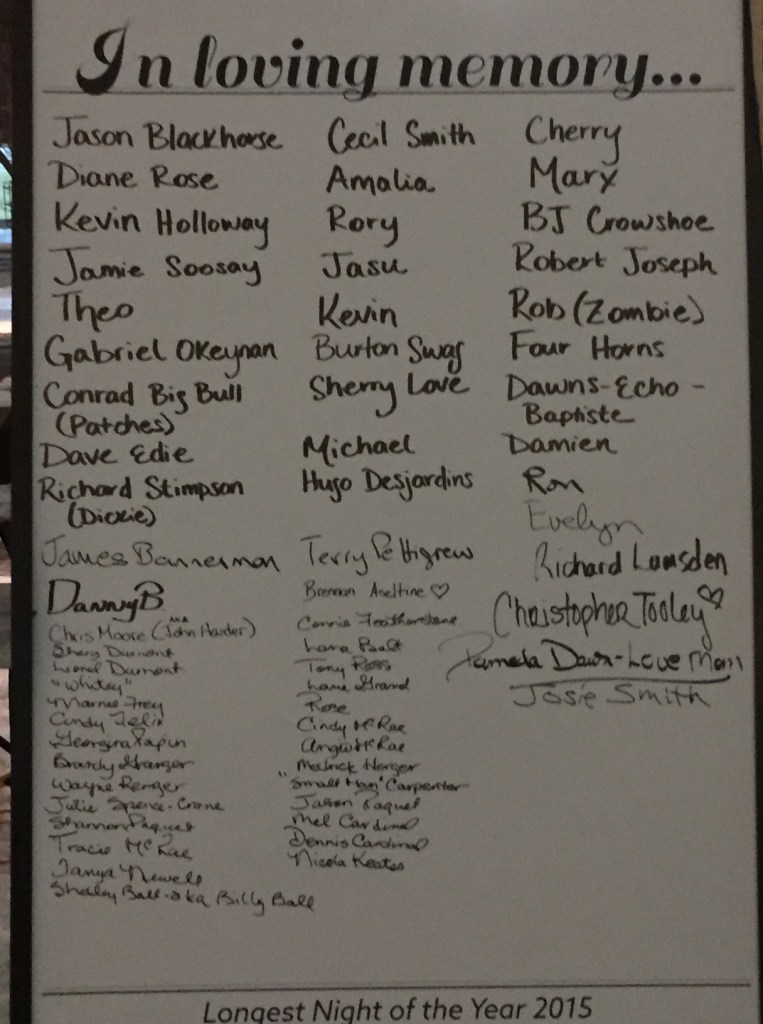 In loving memory...
Jason Blackhorse
Diane Rose
Kevin Holloway
Jamie Soosay
Theo
Gabriel OKeynan
Conrad Big Bull
(Patches)
Dave Edie
Richard Stimpson
(Dickie)
James Bannerman
DannyB
Chris Moore (AKA John Harder)
Shery Dumont
Lionel Dumont
"Whitey"
Marnie Frey
Cindy Felix
Georgina Papin
Brandy Granger
Wayne Renger
Julie Spence-Crane
Shannon Paquet
Tracie McRae
Tanya Newels
Shelley Ball-aka Billy Ball
Cecil Smith
Amalia
Rory
Jasu
Kevin
Burton Swag
Sherry Love
Michael
Hugo Desjardins
Terry Pettigrew
Brennan Aseltine ♡
Connie Featherstone
Lara Balt
Tony Ross
Grand
Rose
Cindy McRae
Angie McRae
Herger
"Small Man" Carpenter
Jason Paquet
Mel Cardinal
Dennis Cardinal
Nicola Keates
Cherry
Marx
BJ Crowshoe
Robert Joseph
Rob (Zombie)
Four Horns
Dawns-Echo-
Baptiste
Damien
Ron
Evelyn
Richard Lumsden
Christopher Tooley ♡
Pamela Dawn-Love Mom
Josie Smith
Longest Night of the Year 2015